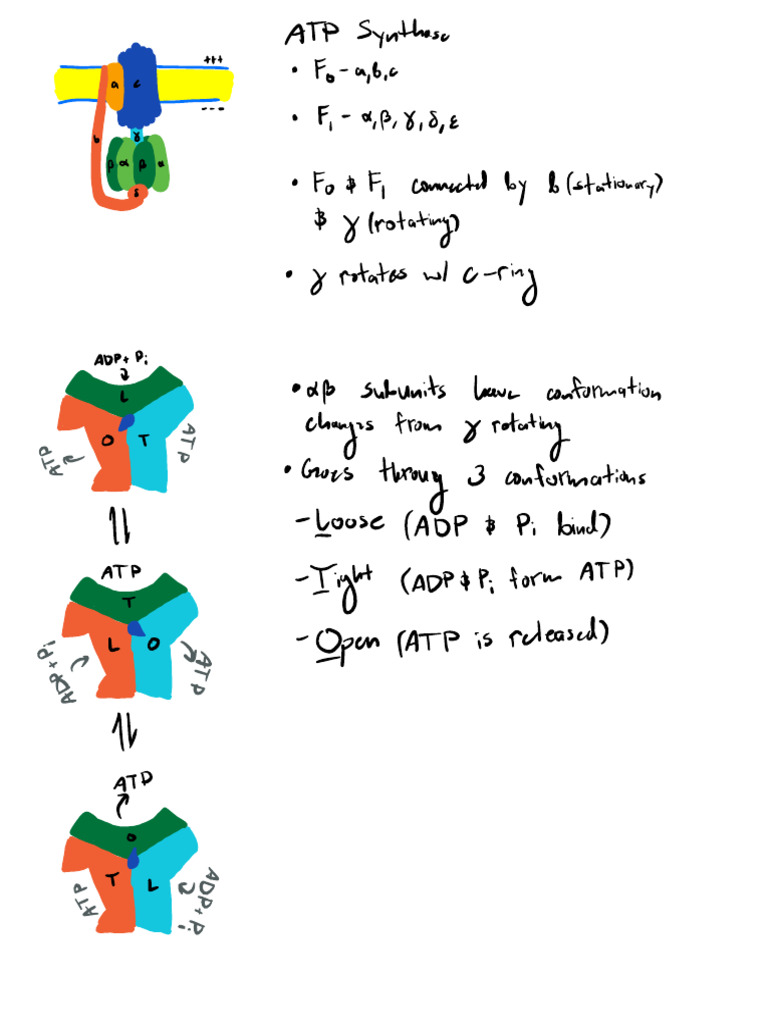 ATP Synthase
• F₀ - a,b,c
• F₁ - α, β, γ, δ, ε
• F₀ & F₁ connected by b (stationary)
& γ (rotating)
• γ rotates w/ c-ring
+++
a c
---
b
γ
β α β α
δ
ADP + Pi
L
O T
ATP
ATP
• αβ subunits have conformation
changes from γ rotating
• Goes through 3 conformations
- Loose (ADP & Pi bind)
- Tight (ADP & Pi form ATP)
- Open (ATP is released)
ATP
T
L O
ADP + Pi
ATP
ATP
O
T L
ATP
ADP + Pi